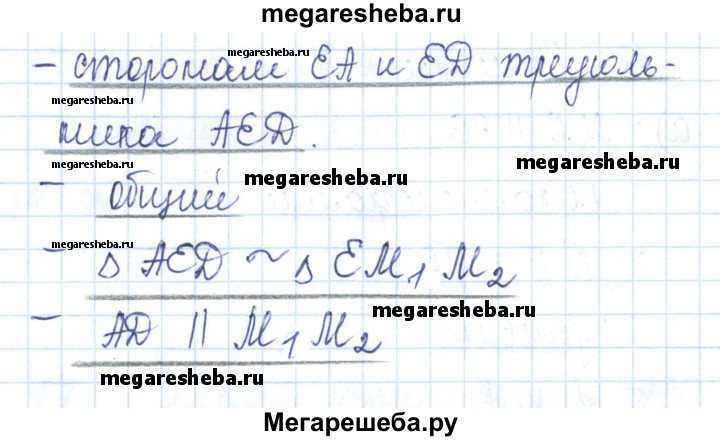 megaresheba.ru
– сторонам EA и ED треуголь-
megaresheba.ru
ника AED.
megaresheba.ru
– общий
megaresheba.ru
megaresheba.ru
– △ AED ~ △ EM₁M₂
megaresheba.ru
– AD || M₁M₂
megaresheba.ru
Мегарешеба.ру